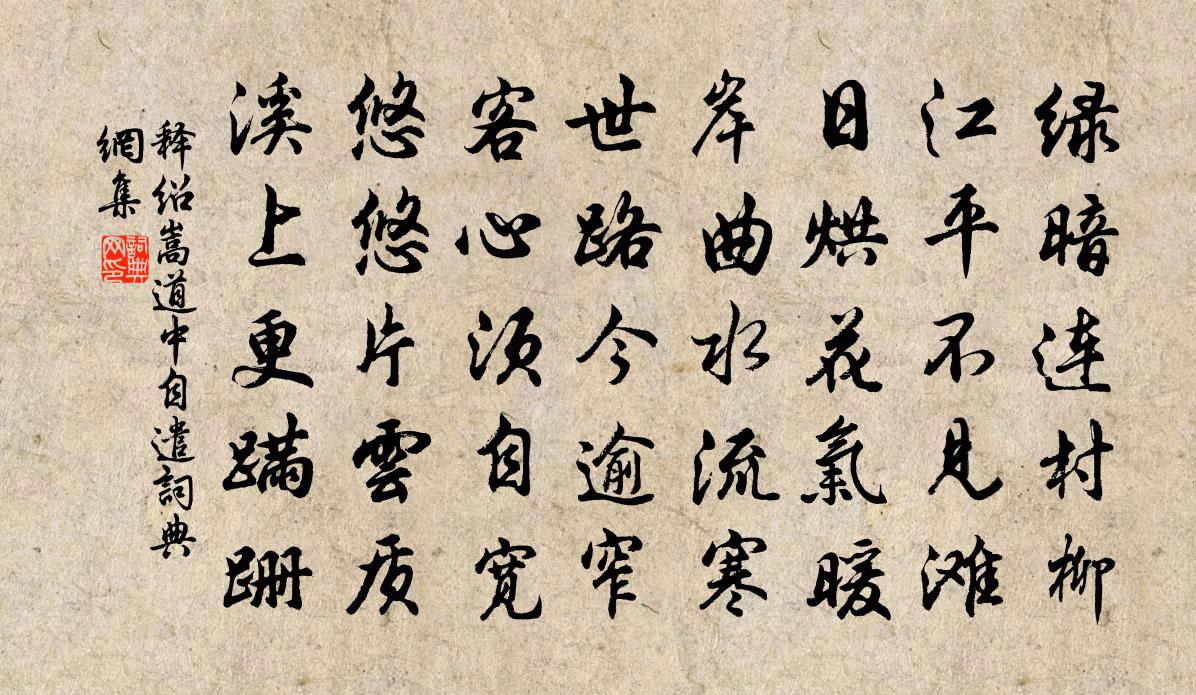 绿暗连村柳
江平不见滩
日烘花氣暖
岸曲水流寒
世路今逾窄
客心须自宽
悠悠片雲质
溪上更蹒跚
释绍嵩道中自遣詞典
網集
詞典
网印